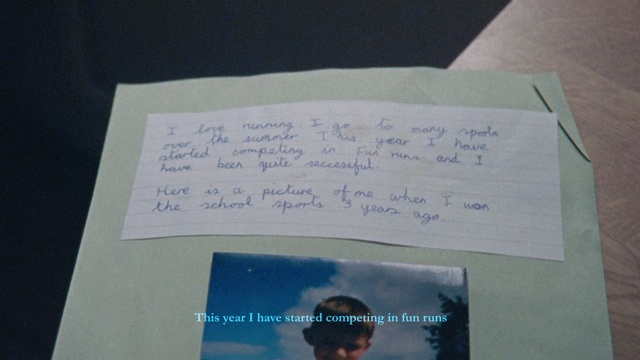 I love running I go to many sports
over the summer This year I have
started competing in Fun runs and I
have been quite seccessful.
Here is a picture of me when I won
the school sports 3 years ago.
This year I have started competing in fun runs